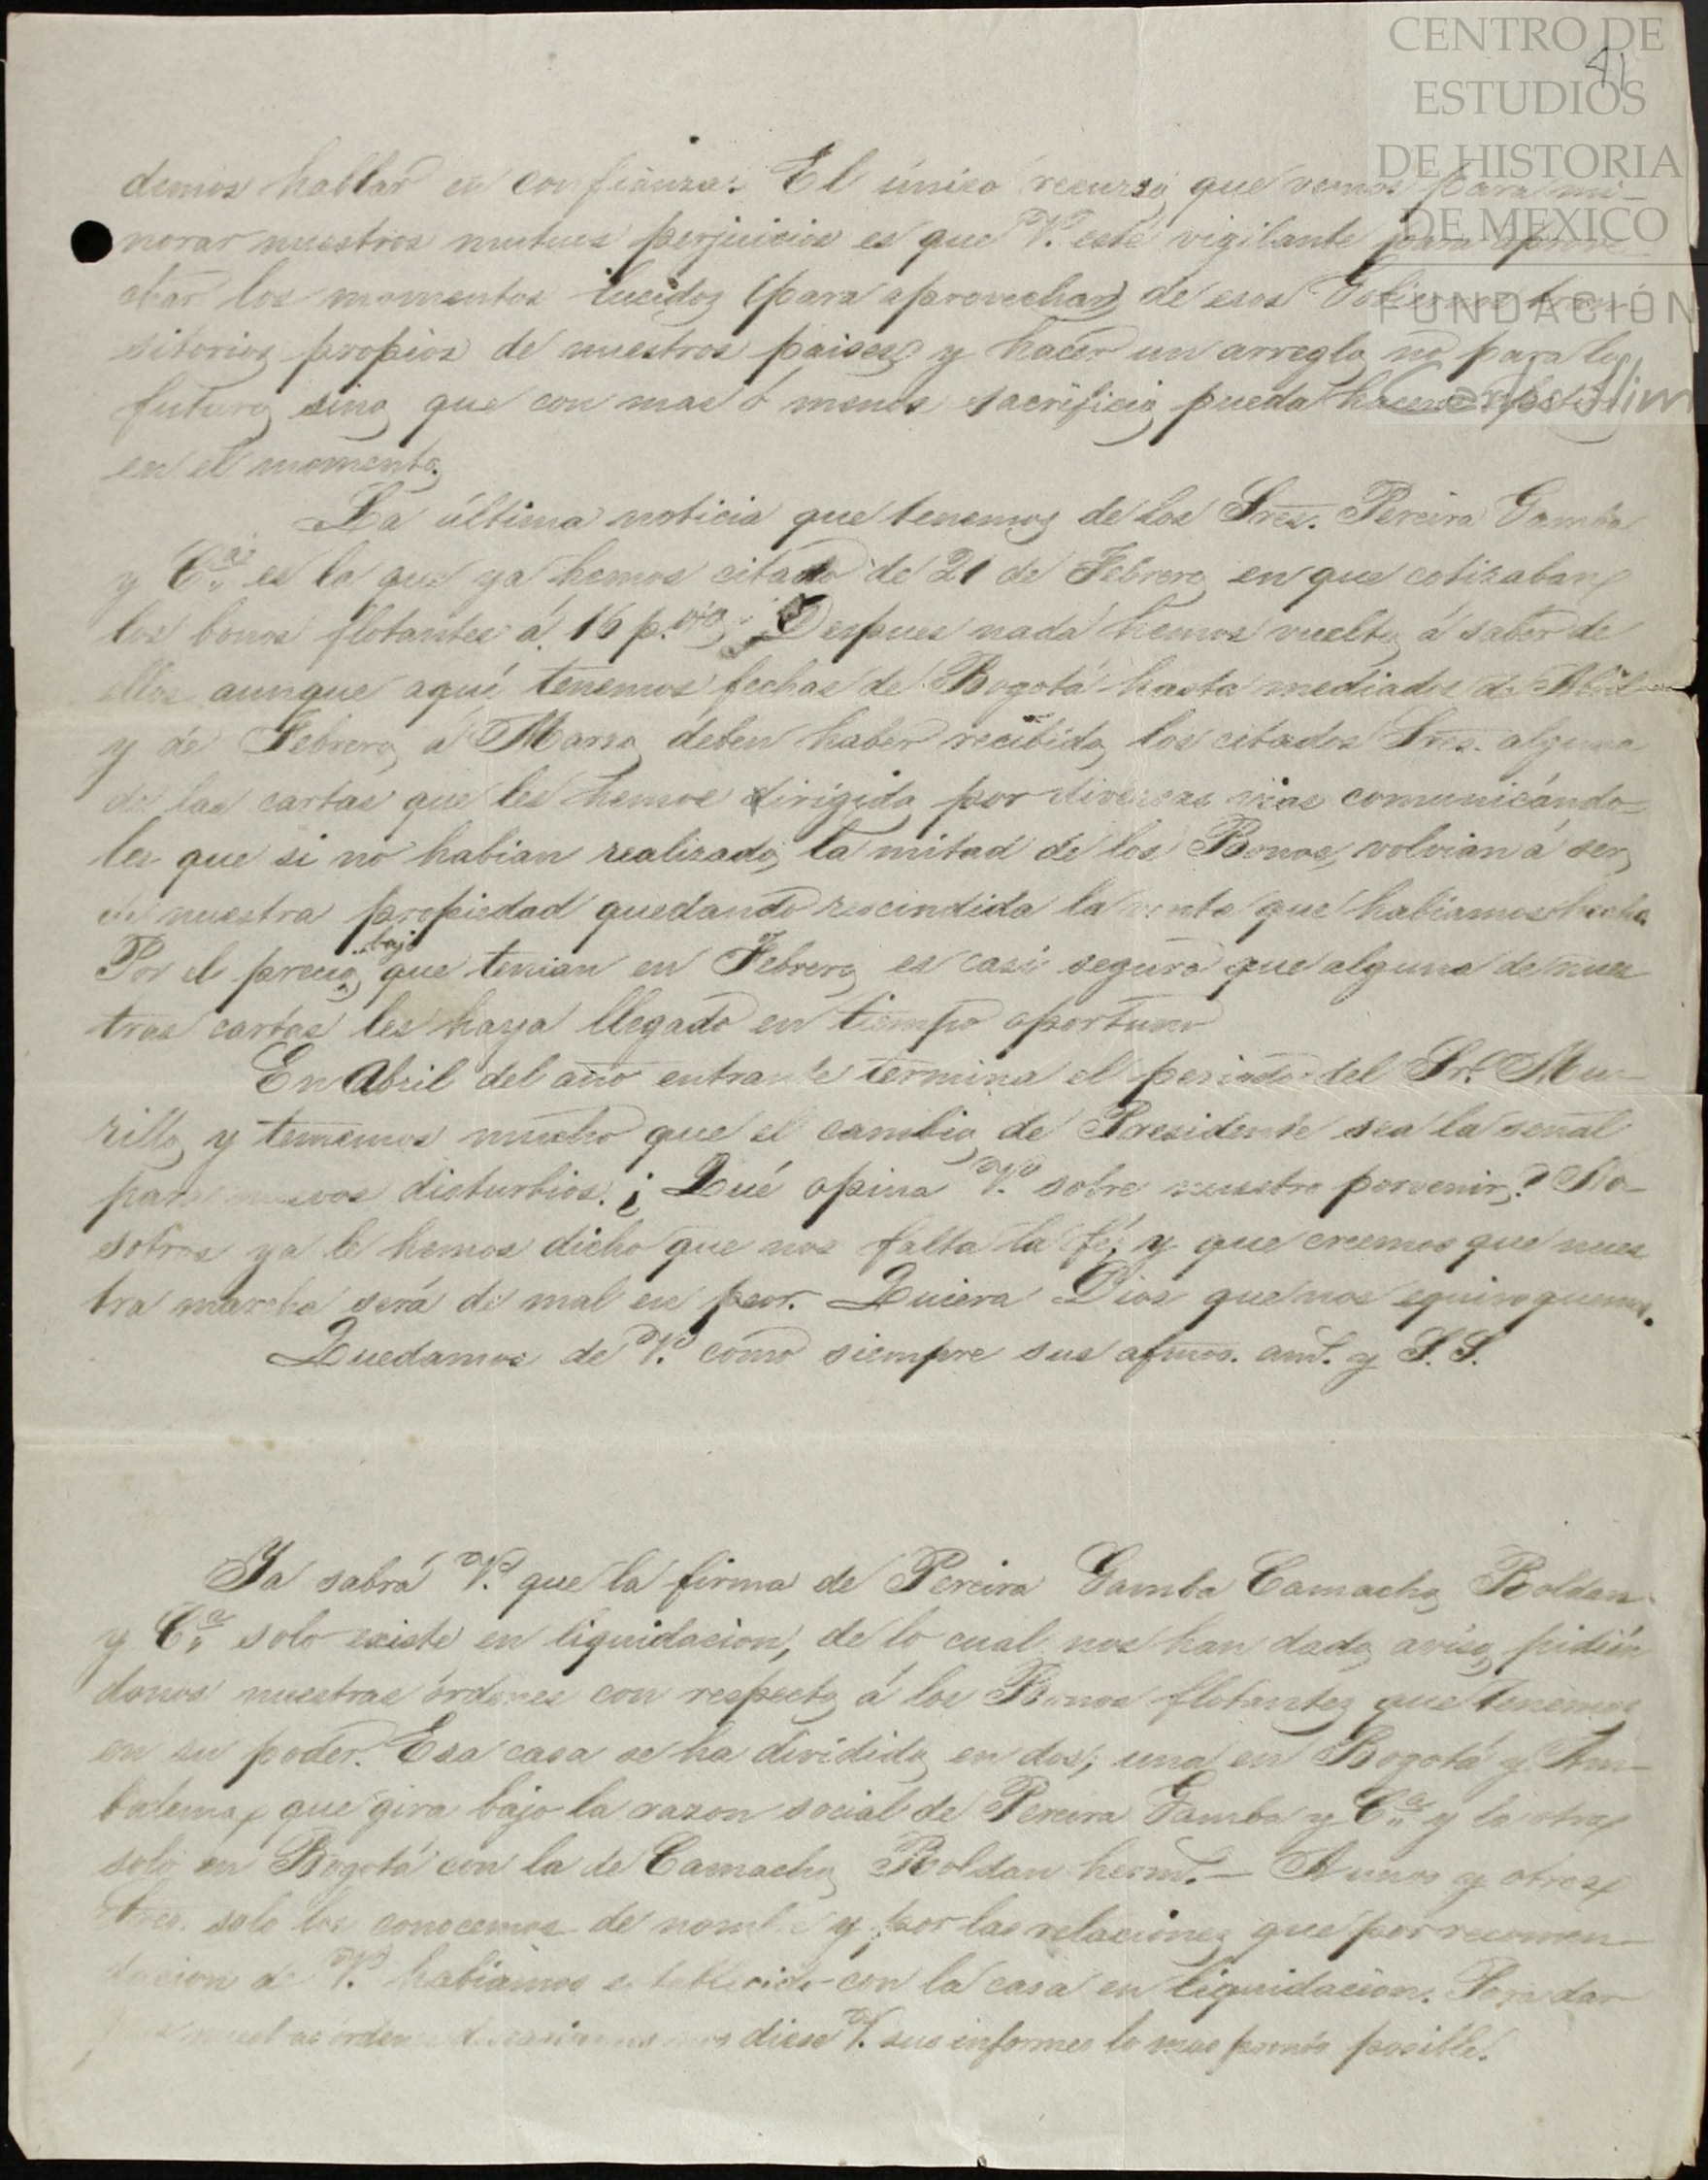 CENTRO DE
ESTUDIOS
DE HISTORIA
DE MEXICO
FUNDACIÓN
Carlos Slim
41
demos hablar en confianza. El único recurso que vemos para mi-
norar nuestros mutuos perjuicios es que V. esté vigilante para aprove-
char los momentos lucidos (para aprovechar) de esos Gobiernos tran-
sitorios propios de nuestros paises y hacer un arreglo no para lo
futuro sino que con mas ó menos sacrificio pueda hacerse
en el momento.
La última noticia que tenemos de los Sres. Pereira Gamba
y Ca. es la que ya hemos citado de 21 de Febrero en que cotizaban
los bonos flotantes á 16 p. Despues nada hemos vuelto á saber de
ellos aunque aquí tenemos fechas de Bogotá hasta mediados de Abril
y de Febrero á Marzo deben haber recibido los citados Sres. alguna
de las cartas que les hemos dirigido por diversas vias comunicándo-
les que si no habian realizado la mitad de los Bonos, volvian á ser
de nuestra propiedad quedando rescindida la venta que habiamos hecho
Por el precio bajo que tenian en Febrero es casi seguro que alguna de nues
tras cartas les haya llegado en tiempo oportuno
En Abril del año entrante termina el periodo del Sr. Mu-
rillo y tememos mucho que el cambio de Presidente sea la señal
para nuevos disturbios. ¿Qué opina V. sobre nuestro porvenir? No-
sotros ya le hemos dicho que nos falta la fé, y que creemos que nues
tra marcha será de mal en peor. Quiera Dios que nos equivoquemos.
Quedamos de V. como siempre sus afmos. am. y S. S.
Ya sabrá V. que la firma de Pereira Gamba Camacho Roldan
y Ca. solo existe en liquidacion, de lo cual nos han dado aviso pidién
donos nuestras órdenes con respecto á los Bonos flotantes que tenemos
en su poder. Esa casa se ha dividido en dos; una en Bogotá y Am-
balema que gira bajo la razon social de Pereira Gamba y Ca. y la otra
solo en Bogotá con la de Camacho Roldan herm. — A unos y otros
Sres. solo los conocemos de nombre y por las relaciones que por recomen-
dacion de V. habiamos establecido con la casa en liquidacion. Para dar
nuestras órdenes nos diese V. sus informes lo mas pronto posible.